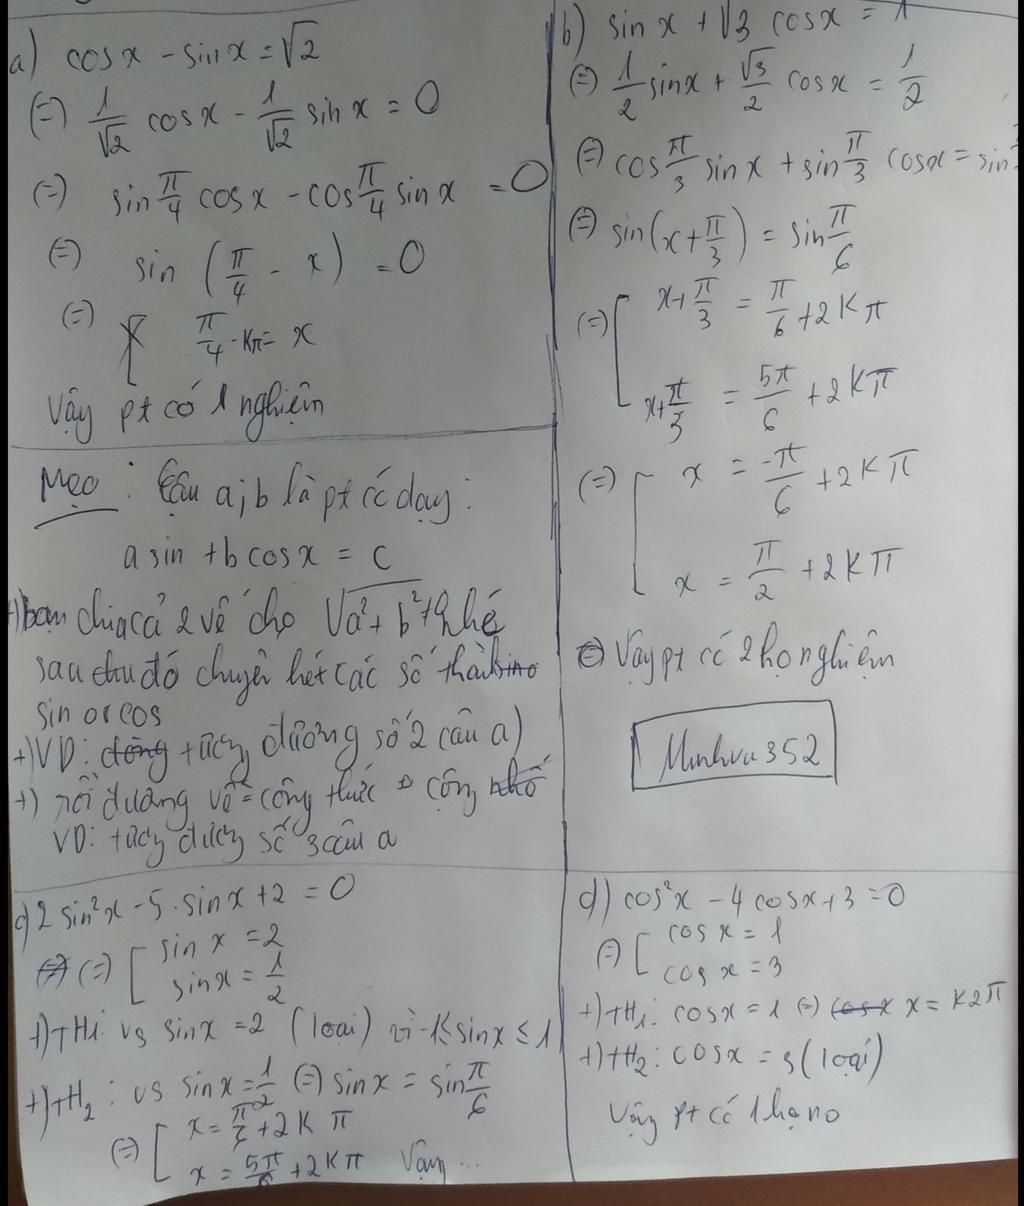 a) cosx - sinx = √2
(=) 1/√2 cosx - 1/√2 sinx = 0
(=) sin π/4 cosx - cos π/4 sinx = 0
(=) sin (π/4 - x) = 0
(=) π/4 - Kπ = x
Vậy pt có 1 nghiệm
Mẹo : Câu a; b là pt có dạng :
a sin + b cosx = c
+) bạn chia cả 2 vế cho √a² + b² nhé
sau đó chuyển hết các số thành
sin or cos
+) VD: dòng tương đương số 2 câu a)
+) rồi đương về = công thức cộng nhớ
VD: tương đương số 3 câu a
b) sinx + √3 cosx = 1
(=) 1/2 sinx + √3/2 cosx = 1/2
(=) cos π/3 sinx + sin π/3 cosx = sin
(=) sin(x + π/3) = sin π/6
(=) [ x + π/3 = π/6 + 2Kπ
x + π/3 = 5π/6 + 2Kπ
(=) [ x = -π/6 + 2Kπ
x = π/2 + 2Kπ
Vậy pt có 2 họ nghiệm
Minhvu352
c) 2 sin²x - 5.sinx + 2 = 0
(=) [ sin x = 2
sinx = 1/2
+) TH1: vs sinx = 2 (loại) vì -1≤ sinx ≤ 1
+) TH2 : vs sinx = 1/2 (=) sinx = sin π/6
(=) [ x = π/6 + 2Kπ
x = 5π/6 + 2Kπ Vậy ...
d) cos²x - 4 cosx + 3 = 0
(=) [ cosx = 1
cosx = 3
+) TH1: cosx = 1 (=) cosx x = K2π
+) TH2 : cosx = 3 (loại)
Vậy pt có 1 họ no